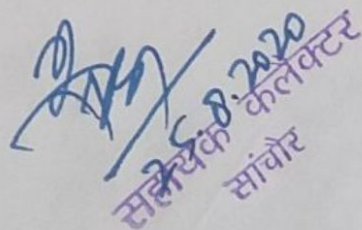 25.8.2020
सहायक कलेक्टर
सांचौर